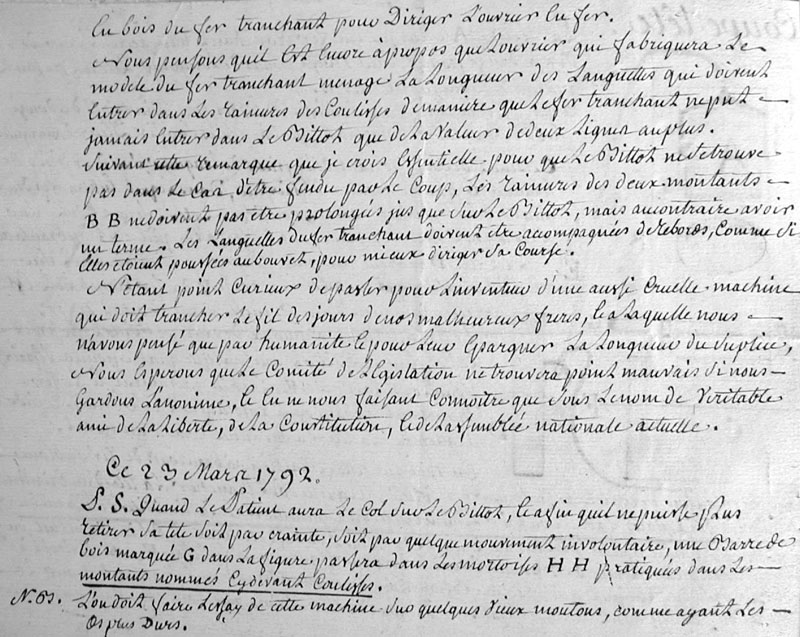 En bois du fer tranchant pour Diriger L'ouvrier En fer.
Nous pensons quil Est Encore àpropos que Louvrier qui fabriquera Le
modele du fer tranchant menage La Longueur des Languettes qui doivent
Entrer dans Les rainures des Coulisses de maniere que Le fer tranchant ne put
jamais Entrer dans Le Billot que de La Valeur de deux Lignes au plus.
Suivant remarque que je crois Essentielle pour que Le Billot ne se trouve
pas dans Le Cas d'être fendu par Le Coup, Les rainures des deux montants
B B ne doivent pas etre prolongées jus que Sur Le Billot, mais au contraire avoir
un terme. Les Languettes du fer tranchant doivent être accompagnées de Rebords, Comme Si
Elles etoient poussées au bouvet, pour mieux diriger Sa Course.
N'étant point Curieux de passer pour L'inventeur d'une aussi Cruelle machine
qui doit trancher Le fil des jours de nos malheureux freres, Et a Laquelle nous
n'avons pensé que par humanité Et pour Leur Epargner La Longueur du Suplice,
Nous Esperons que Le Comité de Législation ne trouvera point mauvais Si nous
Gardons L'anonime, Et En ne nous faisant Connoître que Sous Le nom de Veritable
ami de La Liberte, de La Constitution, Et de L'assemblée nationale actuelle.
Ce 23 Mars 1792.
P. S. Quand Le Patient aura Le Col Sur Le Billot, Et afin quil ne puisse plus
retirer Sa tete Soit par crainte, Soit par quelque mouvement involontaire, une Barre de
bois marquée G dans La figure passera dans Les mortoises H H pratiquées dans Les
montants nommés Cy devant Coulisses.
N. B. L'on doit faire L'essay de cette machine Sur quelques Vieux moutons, comme ayant Les
Os plus Durs.